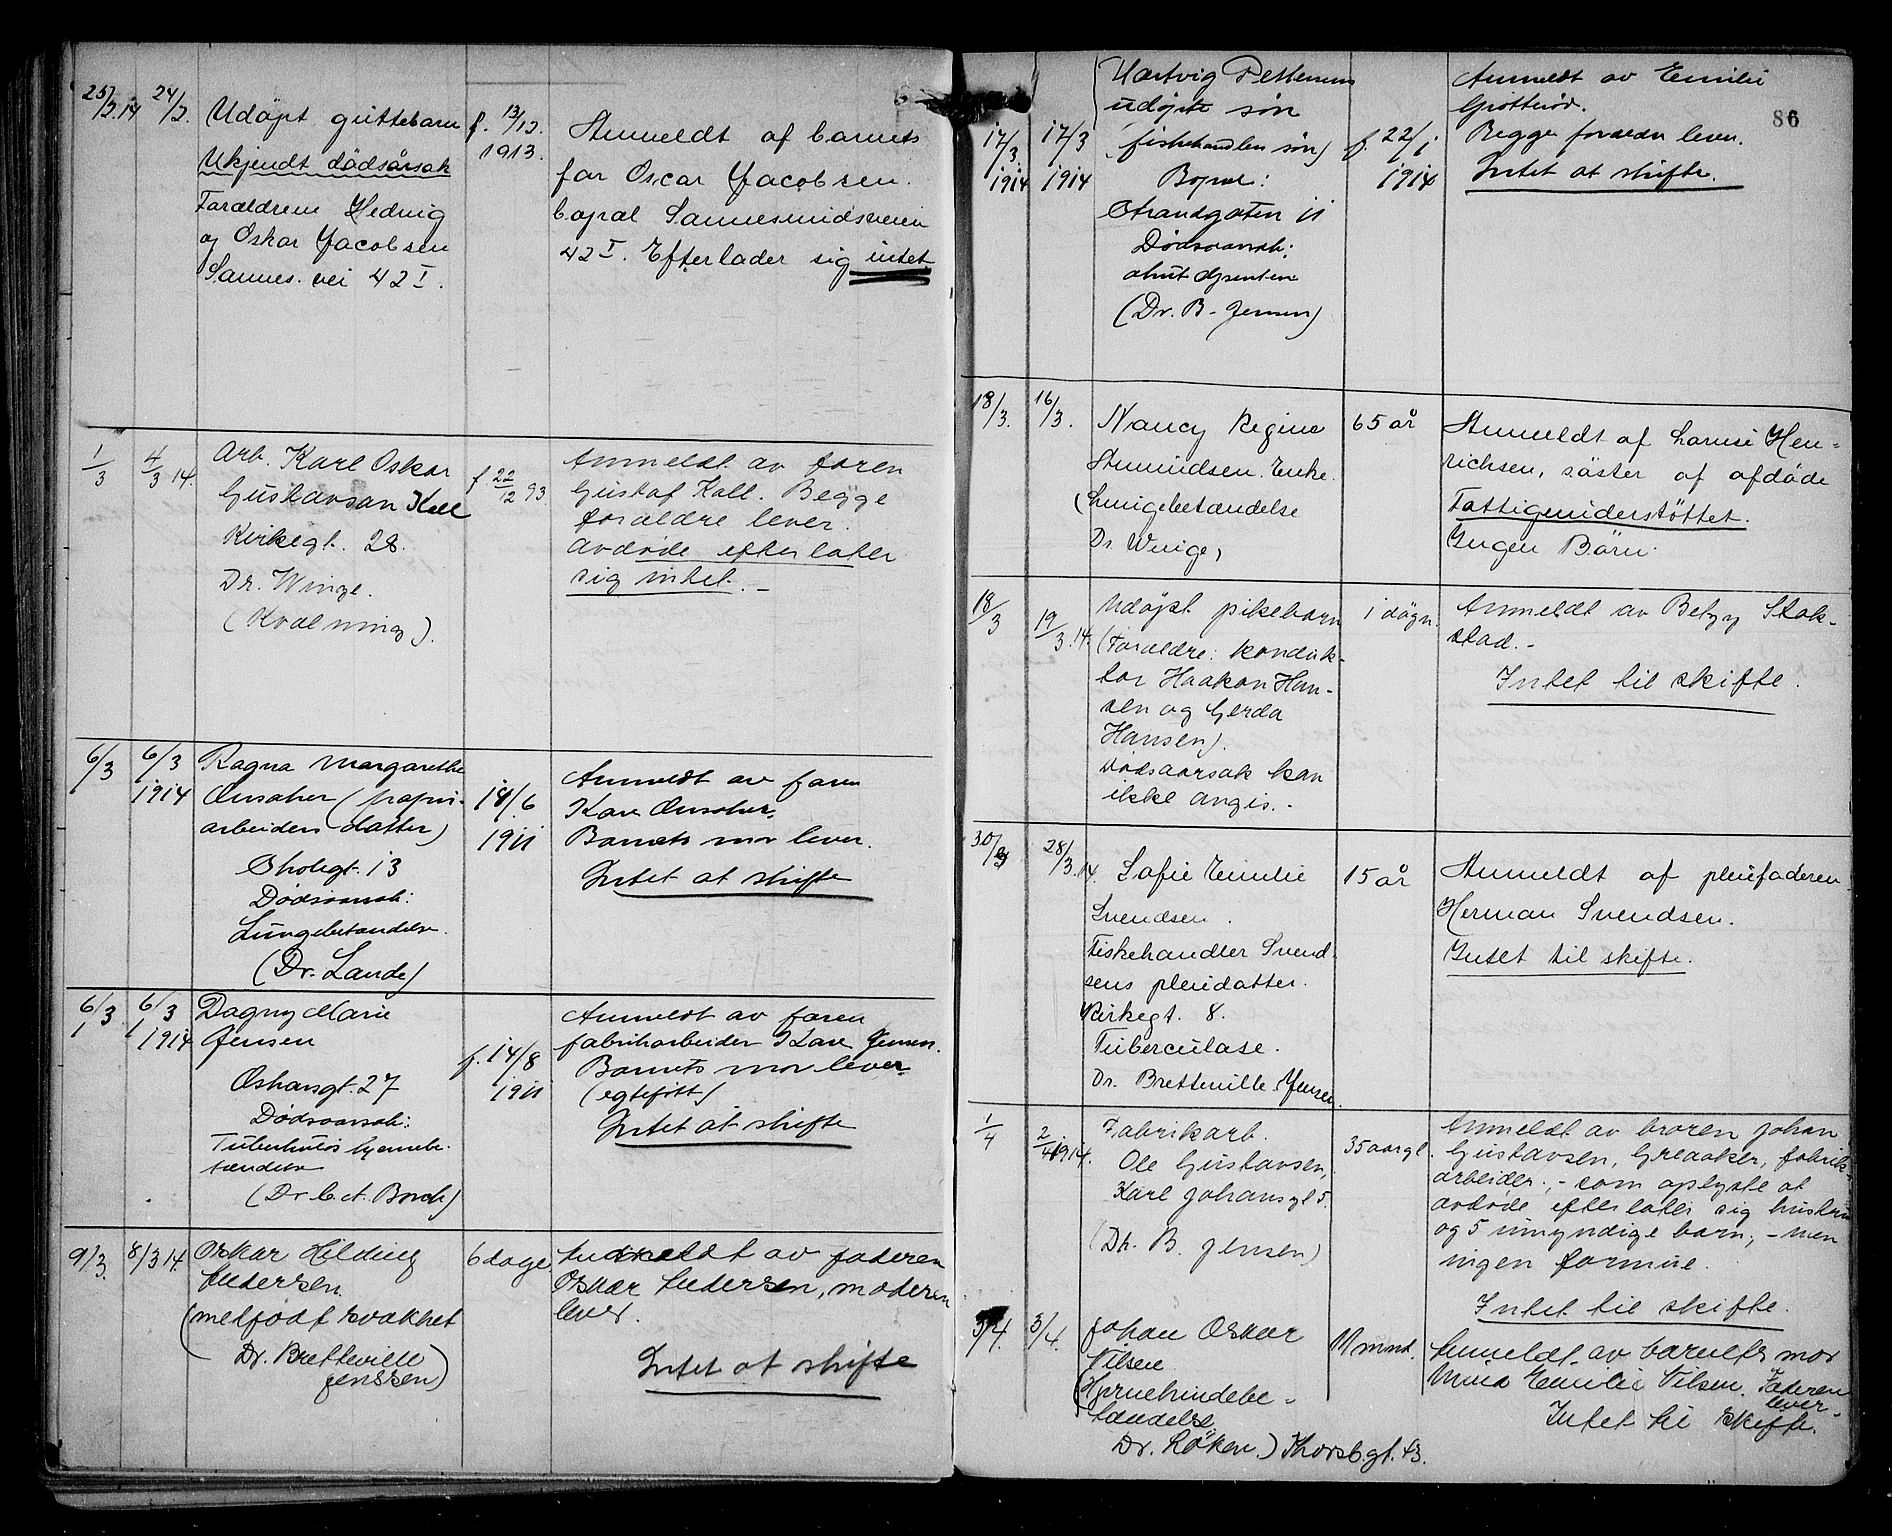 25/2.14 24/2. Udøpt guttebarn f. 13/12. 1913. Anmeldt af barnets
Ukjendt dödsårsak far Oscar Jacobsen.
Forældrene Hedvig bopæl Sannesundsveien
og Oskar Jacobsen 42 I. Efterlader sig intet
Sannes. vei 42 I.
1/3 4/3 14. Arb. Karl Oskar f 22/12 93. Anmeldt av faren
Gustavsan Kall Gustaf Kall. Begge
Kirkegt. 28. foraldre lever.
Dr. Winge. Avdøde efterlater
(Kvælning). sig intet. –
6/3 6/3 1914 Ragna Margarethe 18/6 1911 Anmeldt av faren
arbeiders datter) Barnets mor lever.
Skolegt. 13 Intet at skifte
Dødsaarsak:
Lungebetændelse.
(Dr. Lande)
6/3 6/3 1914 Dagny Marie f. 14/8 1911 Anmeldt av faren
Jensen fabrikarbeider Kare Jensen.
Oskarsgt. 27 Barnets mor lever
Dødsaarsak: (egtefött)
Tuberkuløs hjernebe- Intet at skifte
tændelse
(Dr. C. A. Borch)
9/3. 8/3 14. Oskar Hilding 6 dage. Anmeldt av faderen
Andersen Oskar Andersen, moderen
(medfødt svakhet lever.
Dr. Bretteville Intet at skifte
Jenssen)
86
Hartvig Pettersens Anmeldt av Emilie
udøpte søn Grøtterød.
17/3 1914 17/3 1914 (fiskehandlers søn) f. 22/1 1914 Begge forældre lever.
Bopæl: Intet at skifte.
Strandgaten 11
Dødsaarsak:
akut dysenteri
(Dr. B. Jensen)
18/3. 16/3. Nancy Regine 65 år Anmeldt af Lovise Hen=
Amundsen. Enke. richsen, söster af afdöde
(Lungebetændelse Fattigunderstöttet.
Dr. Winge) Ingen Börn.
18/3 19/3.14. Udøpt pikebarn 1 døgn. Anmeldt av Betzy Stok-
(Foraldre: konduk- stad. –
tør Haakon Han- Intet til skifte.
sen og Gerda
Hansen).
Dødsaarsak kan
ikke angis. –
30/3 28/3.14. Sofie Emilie 15 år Anmeldt af pleiefaderen
Svendsen. Herman Svendsen.
Fiskehandler Svend- Intet til skifte.
sens pleiedatter.
Kirkegt. 8.
Tuberculose.
Dr. Bretteville Jensen.
1/4 2/4 1914. Fabrikarb. 35 aar gl. Anmeldt av broren Johan
Ole Gustavsen, Gustavsen, Greaaker, fabrik-
Karl Johansgt 5. arbeider, – som oplyste at
(Dr. B. Jensen) avdøde efterlater sig hustru
og 5 umyndige barn, – men
ingen formue.
Intet til skifte.
3/4. 3/4. Johan Oskar 11 mnd. Anmeldt av barnets mor
Nilsen Emilie Nilsen. Faderen
(Hjernehindebe- lever.
tændelse Intet til skifte.
Dr. Röken.) Thorsb.gt. 43.